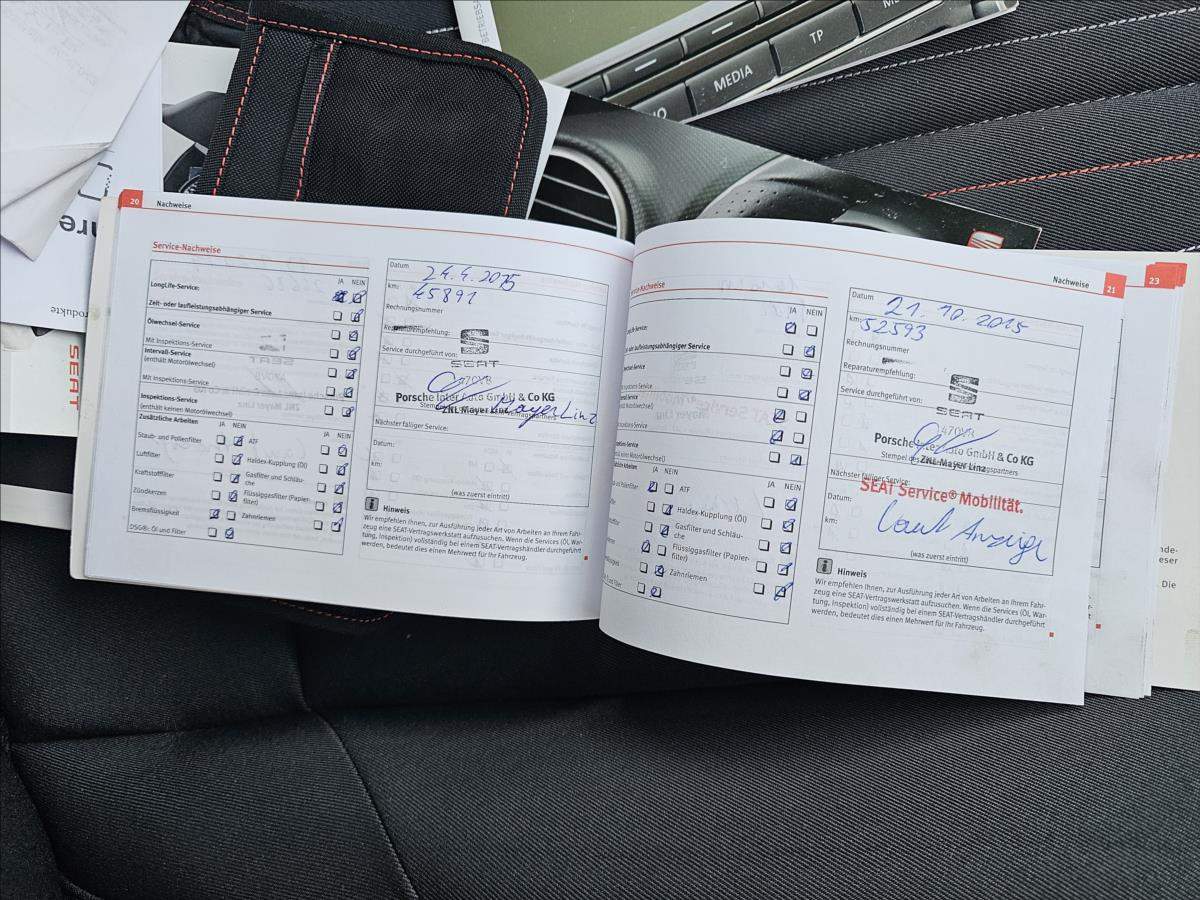 MEDIA
TP
SEAT
20
Nachweise
Service-Nachweise
JA NEIN
LongLife-Service:
Zeit- oder laufleistungsabhängiger Service
Ölwechsel-Service
Mit Inspektions-Service
Intervall-Service
(enthält Motorölwechsel)
Mit Inspektions-Service
Inspektions-Service
(enthält keinen Motorölwechsel)
Zusätzliche Arbeiten
JA NEIN
JA NEIN
Staub- und Pollenfilter
ATF
Luftfilter
Haldex-Kupplung (Öl)
Kraftstofffilter
Gasfilter und Schläu-
che
Zündkerzen
Flüssiggasfilter (Papier-
filter)
Bremsflüssigkeit
Zahnriemen
DSG®: Öl und Filter
Datum
24.4.2015
km:
45891
Rechnungsnummer
Reparaturempfehlung:
Service durchgeführt von:
SEAT
470VR
Porsche Inter Auto GmbH & Co KG
ZNL Mayer Linz
Mayer Linz
Nächster fälliger Service:
Datum:
km:
(was zuerst eintritt)
Hinweis
Wir empfehlen Ihnen, zur Ausführung jeder Art von Arbeiten an Ihrem Fahr-
zeug eine SEAT-Vertragswerkstatt aufzusuchen. Wenn die Services (Öl, War-
tung, Inspektion) vollständig bei einem SEAT-Vertragshändler durchgeführt
werden, bedeutet dies einen Mehrwert für Ihr Fahrzeug.
Nachweise
21
23
JA NEIN
Haldex-Kupplung (Öl)
ATF
JA NEIN
Gasfilter und Schläu-
che
Flüssiggasfilter (Papier-
filter)
Zahnriemen
Datum
21.10.2015
km:
52593
Rechnungsnummer
Reparaturempfehlung:
Service durchgeführt von:
SEAT
470VR
Porsche Inter Auto GmbH & Co KG
ZNL Mayer Linz
Nächster fälliger Service:
SEAT Service® Mobilität.
Datum:
Laut Anzeige
km:
(was zuerst eintritt)
Hinweis
Wir empfehlen Ihnen, zur Ausführung jeder Art von Arbeiten an Ihrem Fahr-
zeug eine SEAT-Vertragswerkstatt aufzusuchen. Wenn die Services (Öl, War-
tung, Inspektion) vollständig bei einem SEAT-Vertragshändler durchgeführt
werden, bedeutet dies einen Mehrwert für Ihr Fahrzeug.